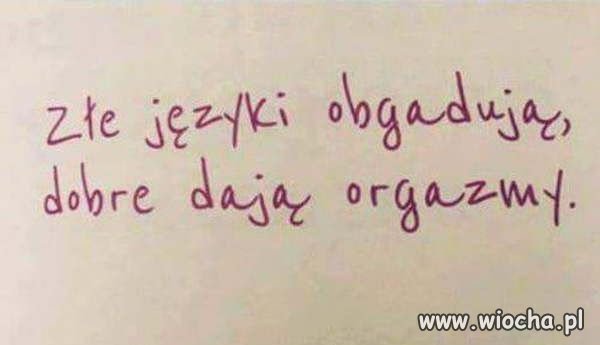 złe języki obgadują,
dobre dają orgazmy.
www.wiocha.pl